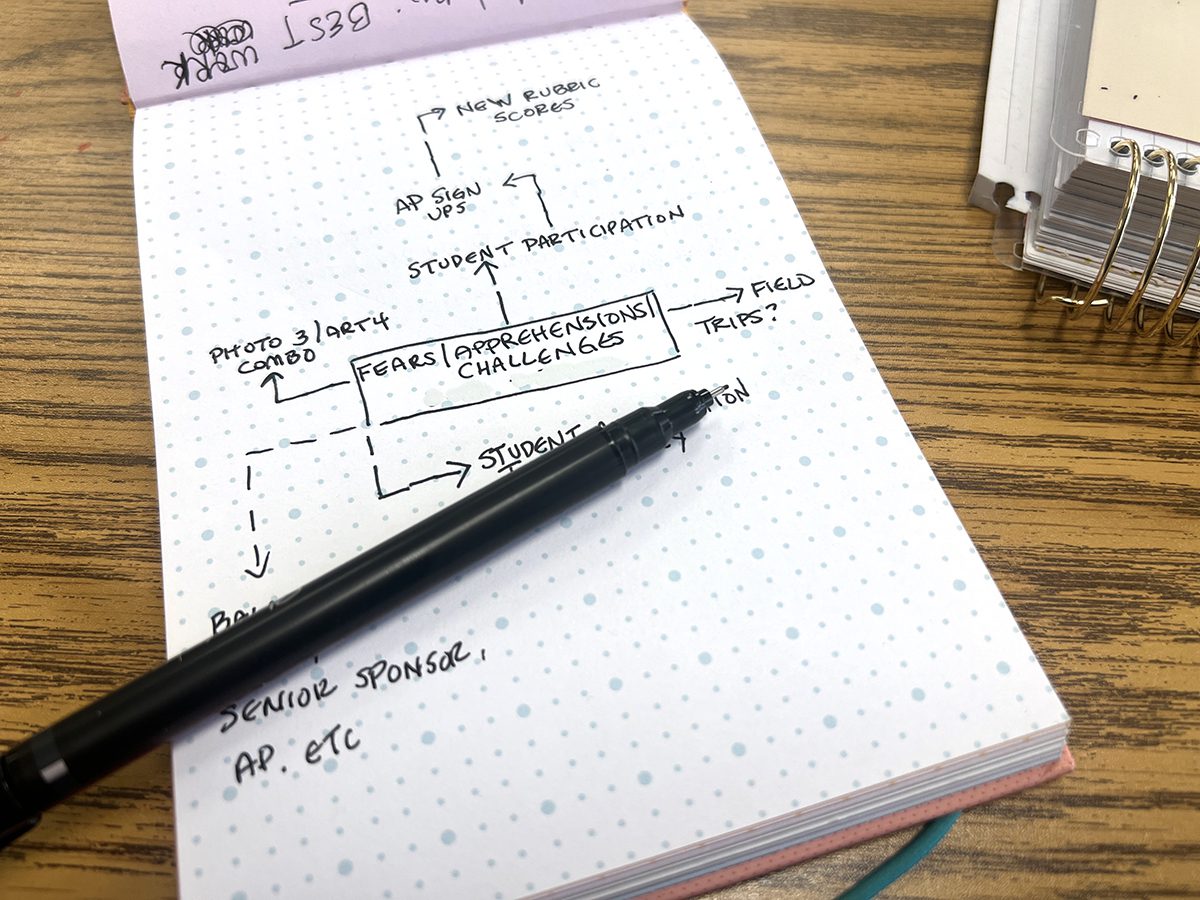 BEST
WORK
NEW RUBRIC
SCORES
AP SIGN
UPS
STUDENT PARTICIPATION
FIELD
TRIPS?
PHOTO 3/ART4
COMBO
FEARS/APPREHENSIONS/
CHALLENGES
STUDENT
SENIOR SPONSOR,
AP. ETC